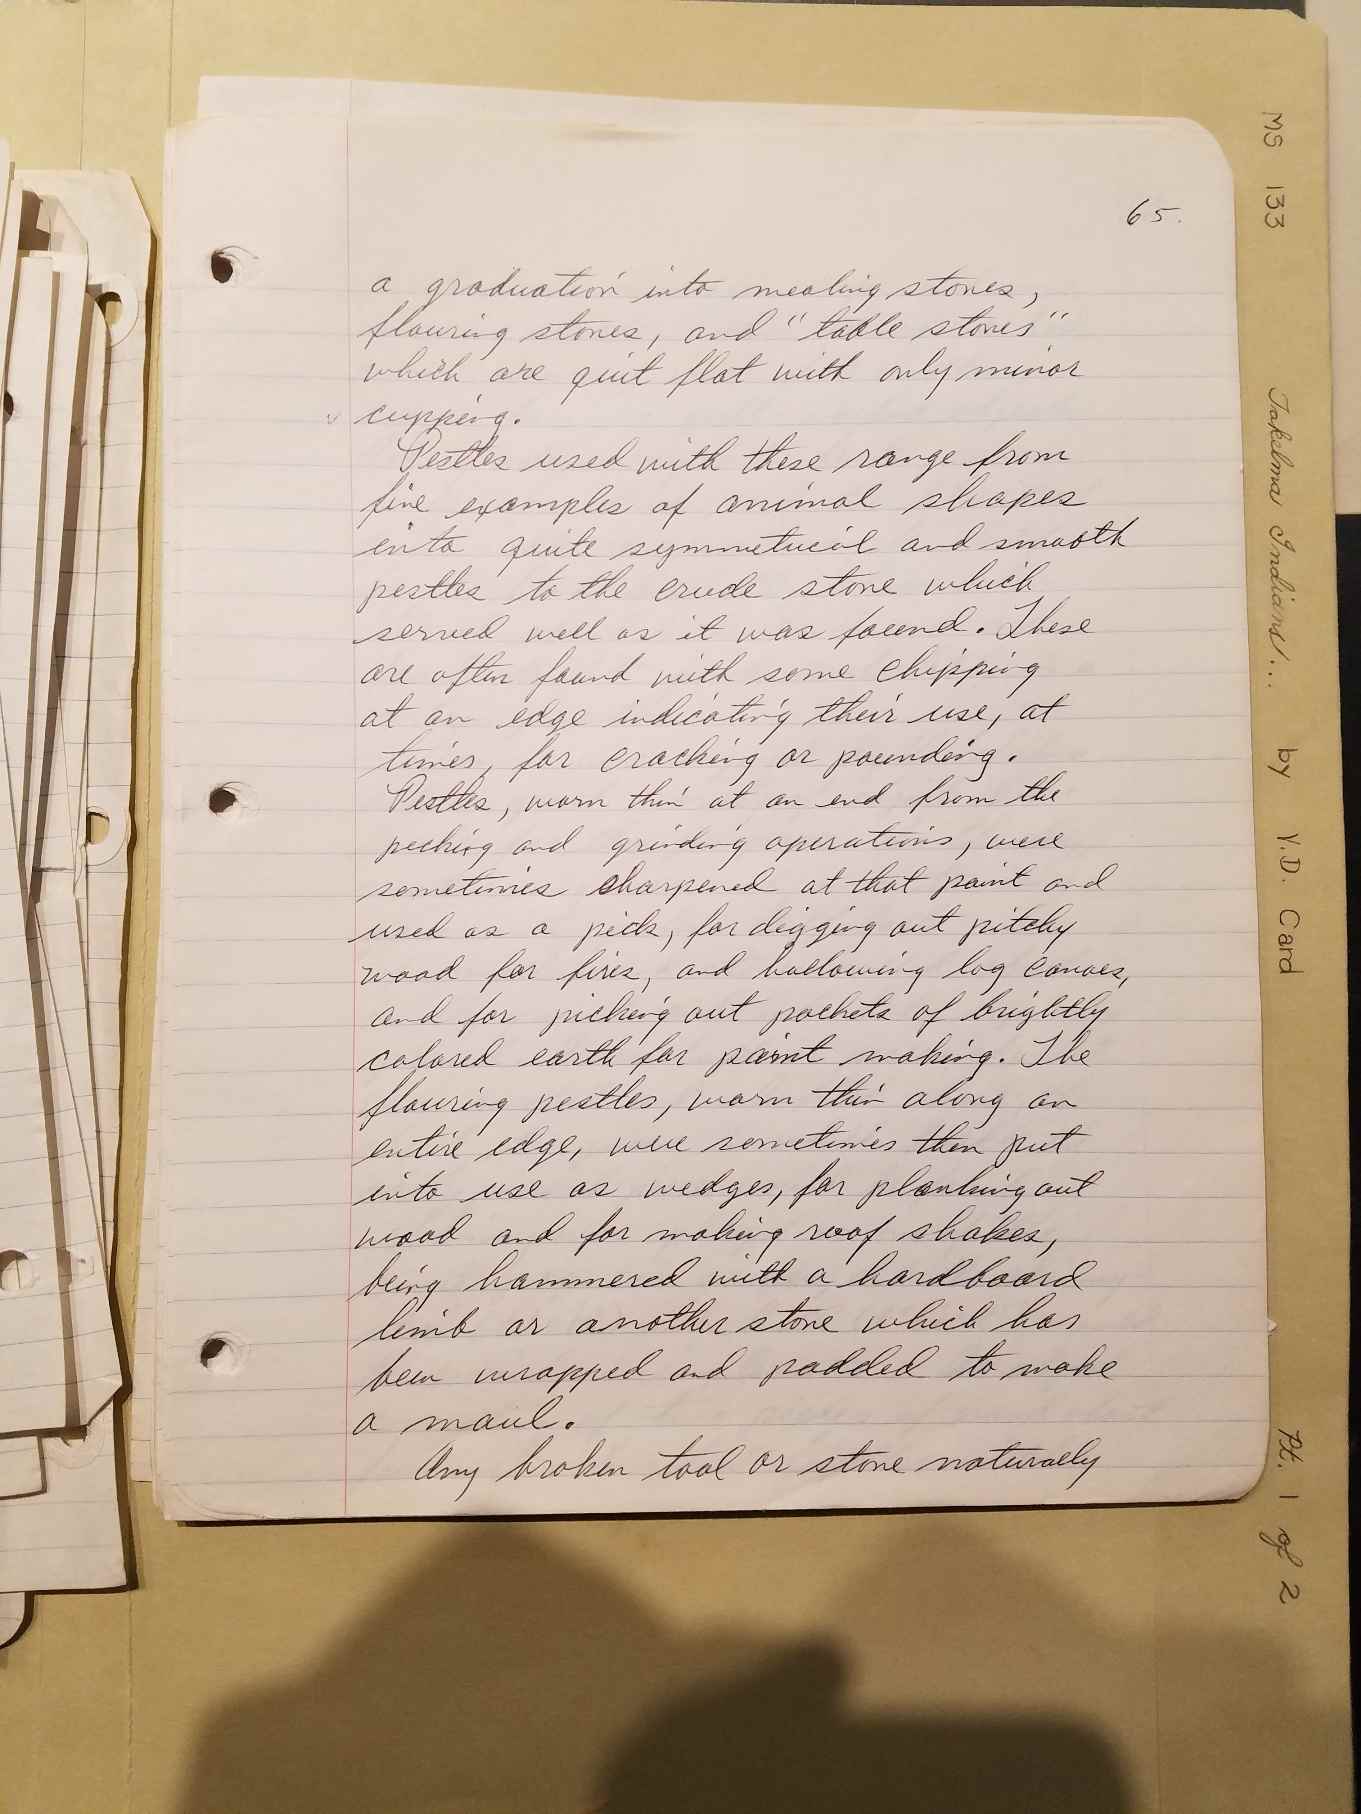 65.
a graduation into mealing stones,
flouring stones, and "table stones"
which are quit flat with only minor
cupping.
Pestles used with these range from
fine examples of animal shapes
into quite symmetrical and smooth
pestles to the crude stone which
served well as it was found. These
are often found with some chipping
at an edge indicating their use, at
times, for cracking or pounding.
Pestles, worn thin at an end from the
pecking and grinding operations, were
sometimes sharpened at that point and
used as a pick, for digging out pitchy
wood for fires, and hollowing log canoes,
and for picking out pockets of brightly
colored earth for paint making. The
flouring pestles, worn thin along an
entire edge, were sometimes then put
into use as wedges, for planking out
wood and for making roof shakes,
being hammered with a hardboard
limb or another stone which has
been wrapped and padded to make
a maul.
Any broken tool or stone naturally
MS 133 Takelma Indians... by V.D. Card Pt. 1 of 2